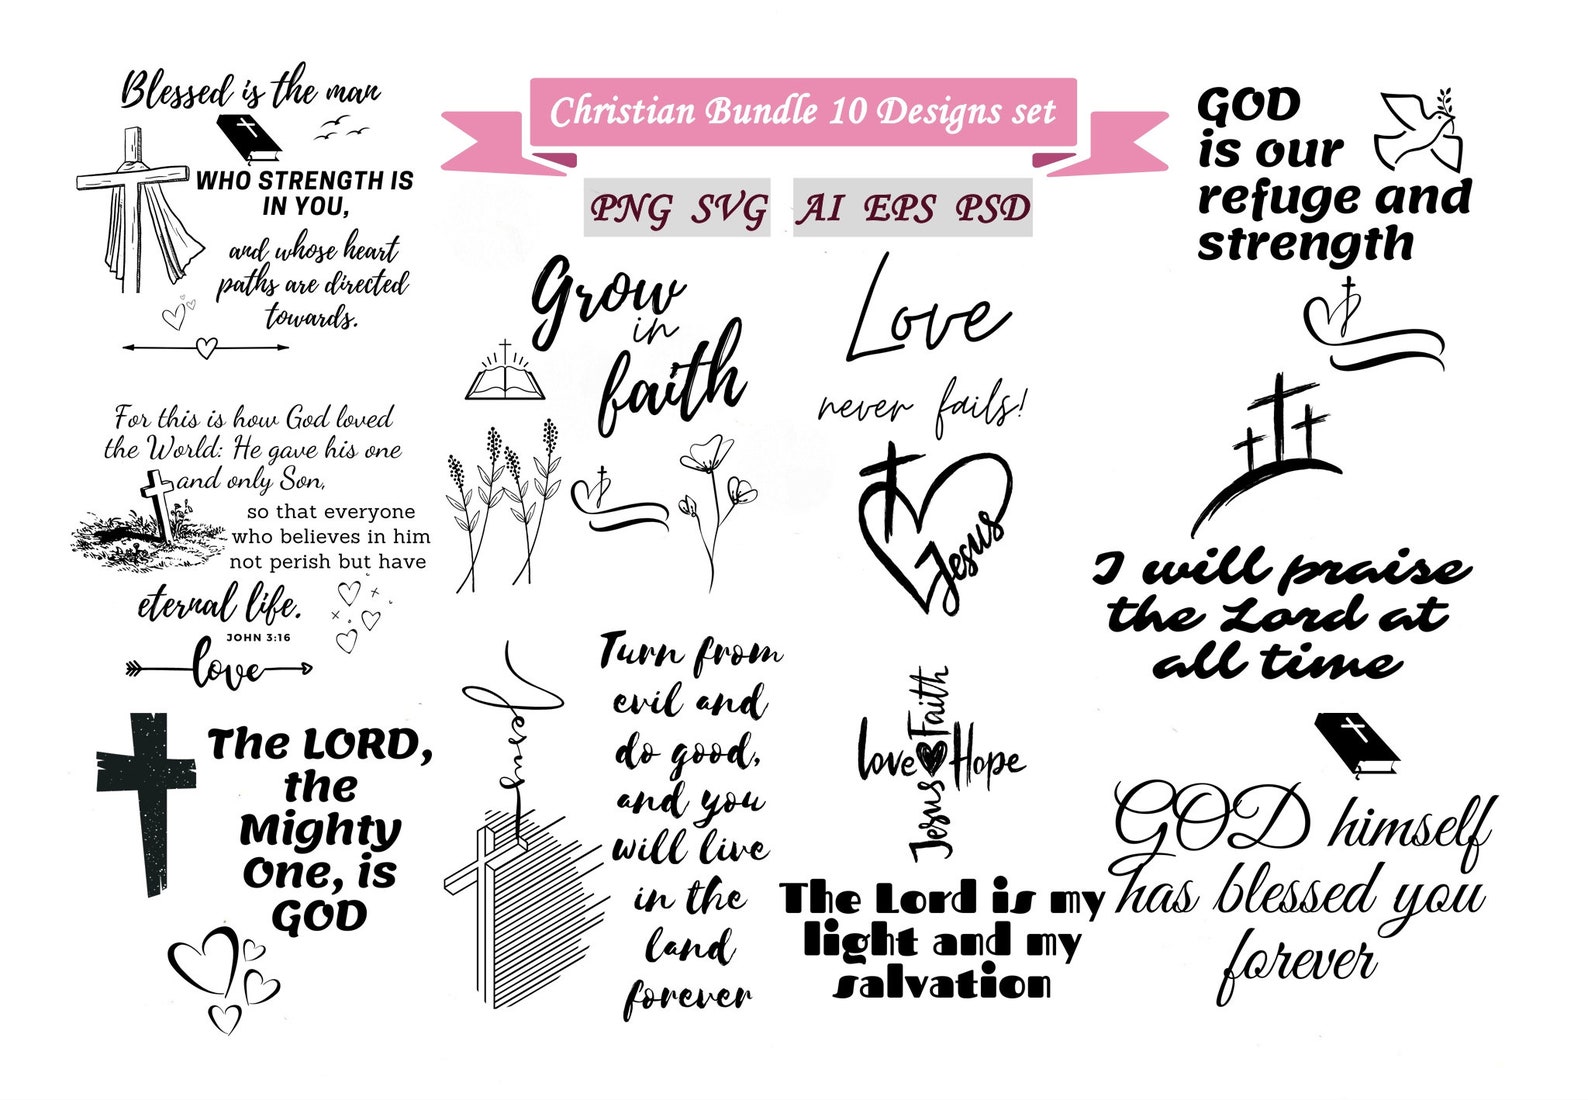 Christian Bundle 10 Designs set
PNG SVG
AI EPS PSD
Blessed is the man
WHO STRENGTH IS
IN YOU,
and whose heart
paths are directed
towards.
For this is how God loved
the World: He gave his one
and only Son,
so that everyone
who believes in him
not perish but have
eternal life.
JOHN 3:16
love
The LORD,
the
Mighty
One, is
GOD
Grow
in
faith
Jesus
Turn from
evil and
do good,
and you
will live
in the
land
forever
Love
never fails!
Jesus
Faith
love Hope
Jesus
The Lord is my
light and my
salvation
GOD
is our
refuge and
strength
I will praise
the Lord at
all time
GOD himself
has blessed you
forever